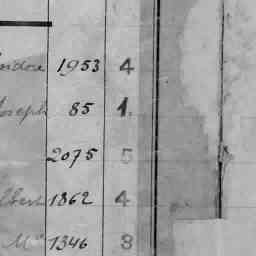 isidore 1953 4
Joseph 85 1.
2075 5
lbert 1862 4
Mce 1346 3